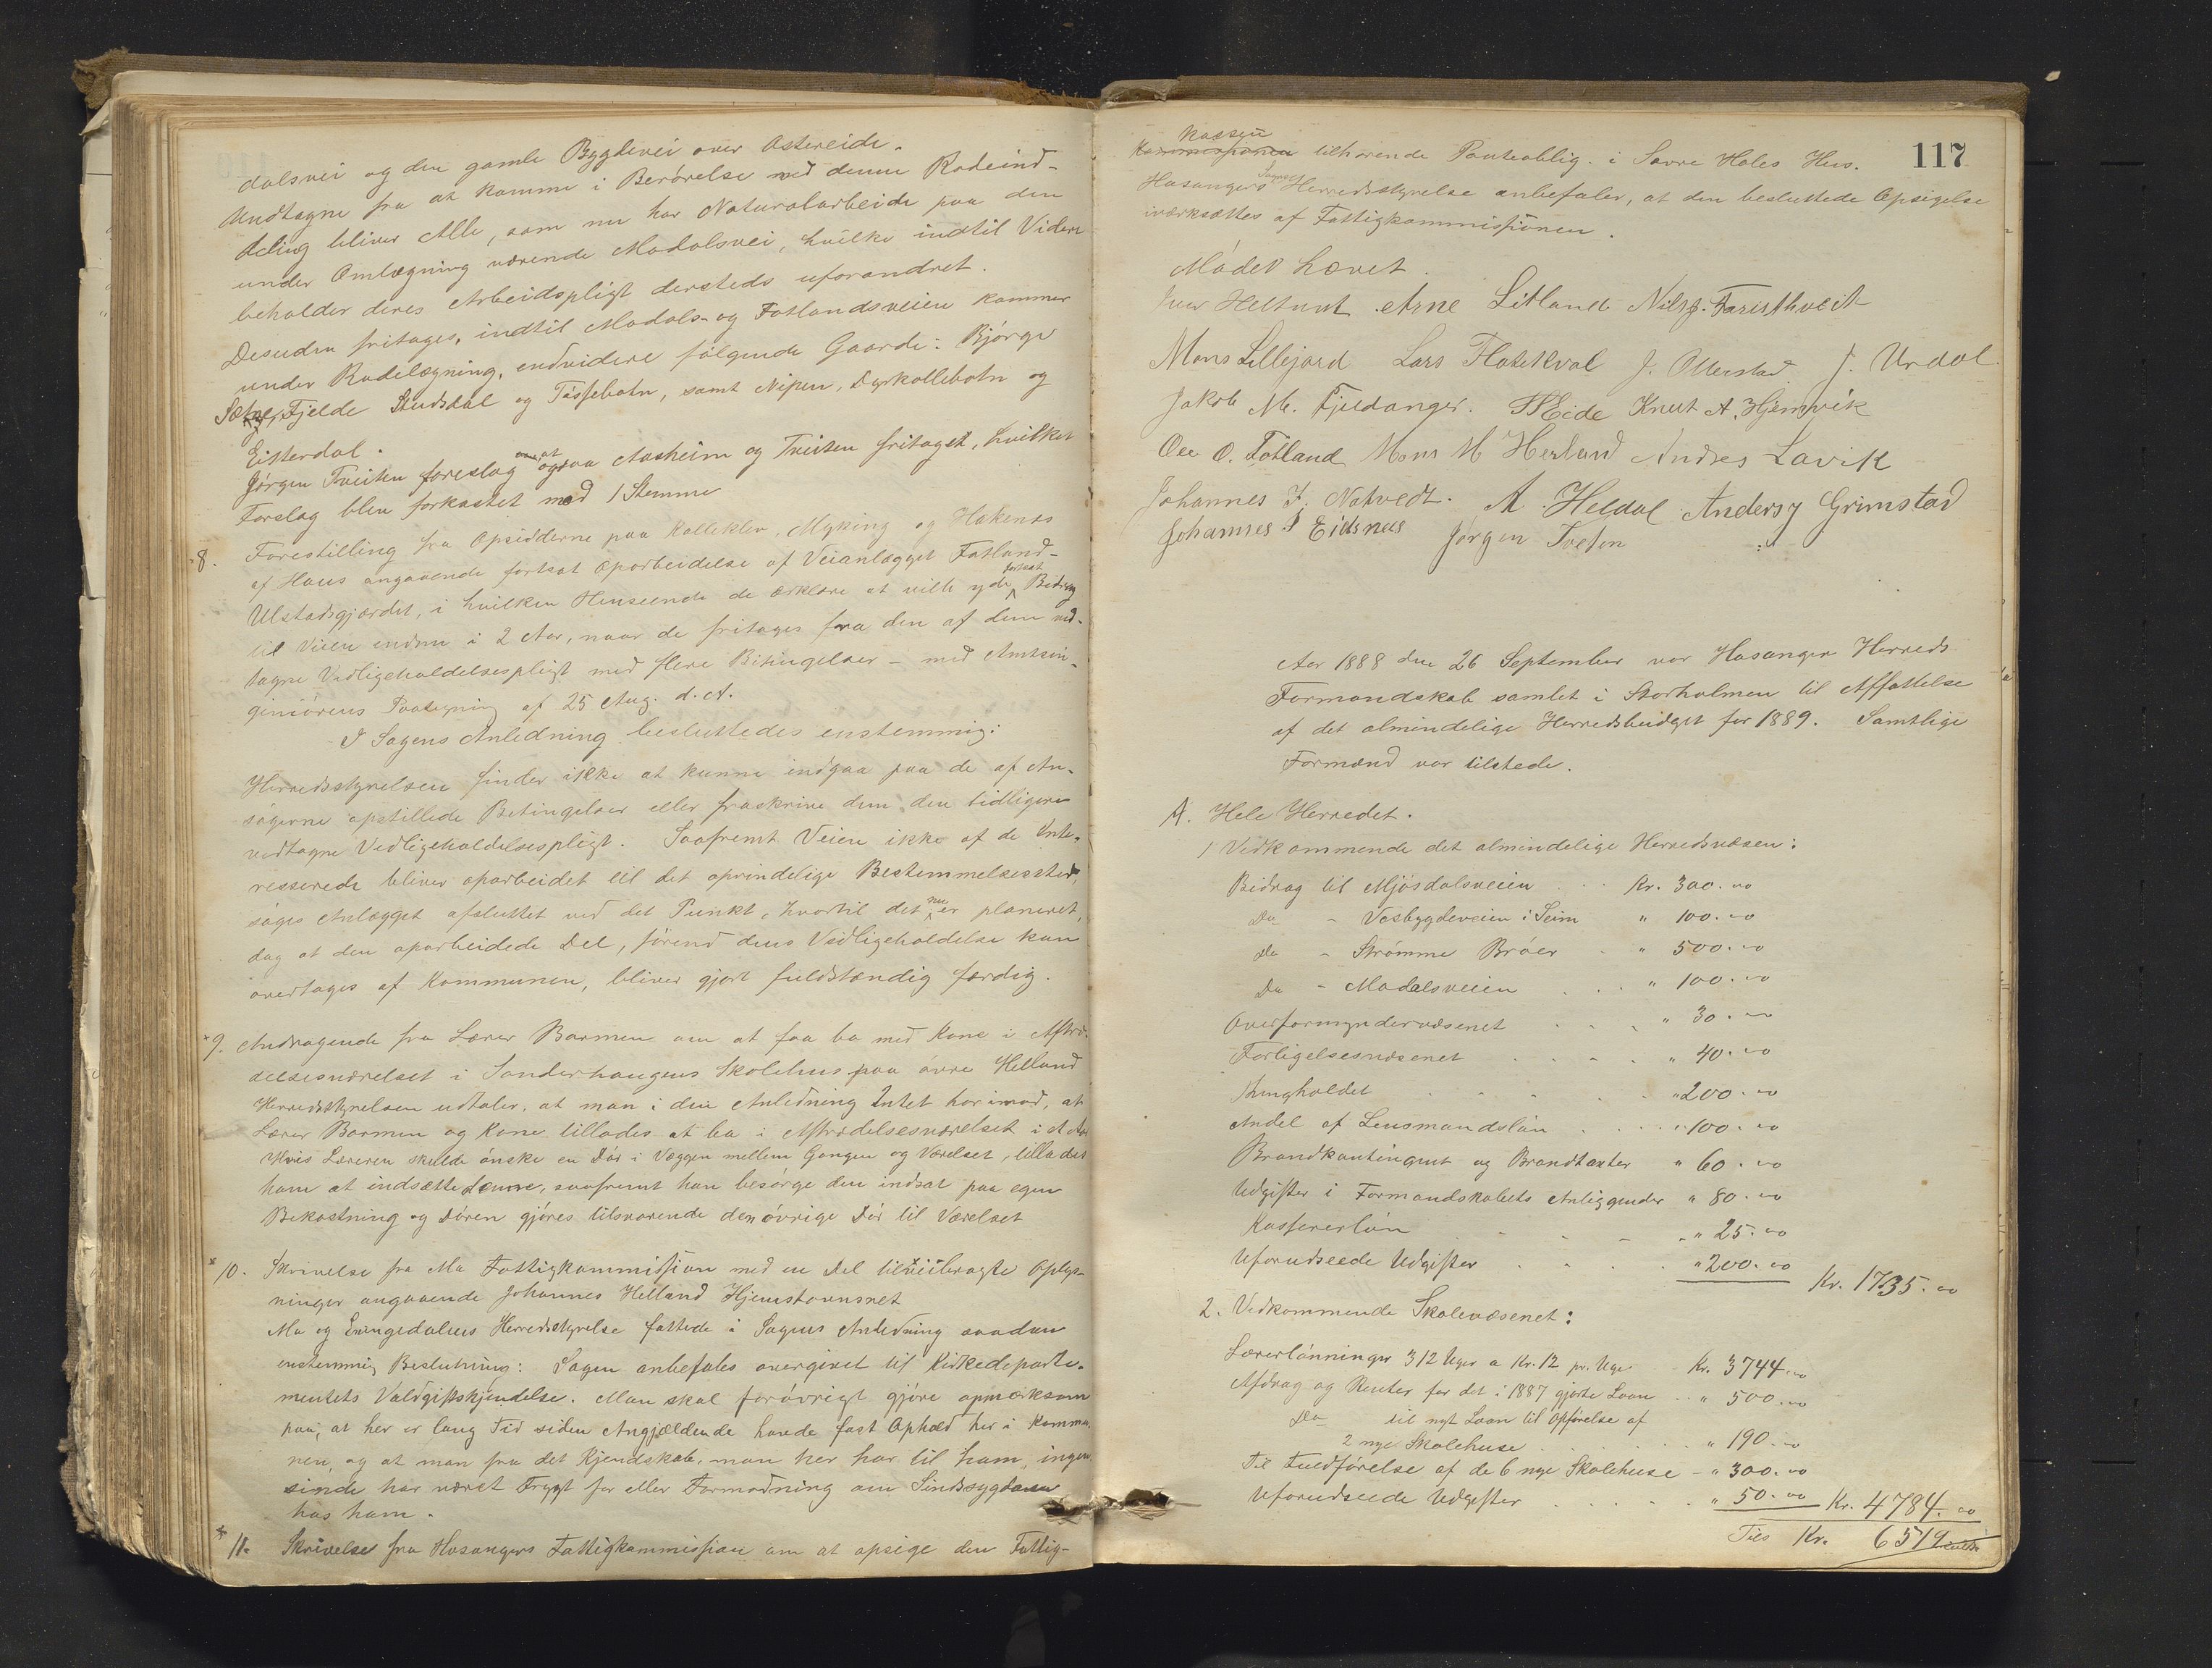 dalsvei og den gamle Bygdevei over Ostereide.
Undtagne fra at komme i Berørelse ved denne Rodeind-
deling bliver Alle, som nu har Naturalarbeide paa den
under Omlægning værende Modalsvei, hvilke indtil Videre
beholder deres Arbeidspligt dersteds uforandret.
Desuden fritages, indtil Modals- og Fotlandsveien kommer
under Rodelægning, endvidere følgende Gaarde: Bjørge
Sætre, Fjelde Studsdal og Tøssebotn, samt Nipen, Dyrkollebotn og
Eitterdal.
Jørgen Tveiten foreslog om at ogsaa Aasheim og Tveiten fritaget, hvilket
Forslag blev forkastet mod 1 Stemme
8. Forestilling fra Opsidderne paa Kalleklev, Myking og Hakenes
af Hous angaaende fortsat Oparbeidelse af Veianlægget Fatland-
Ulstadsgjærdet, i hvilken Henseende de erklære at ville yde fortsat Bidrag
til Veien endnu i 2 Aar, naar de fritages fra den af dem ved-
tagne Vedligeholdelsespligt med flere Betingelser - med Amtsin-
geniörens Paategning af 25 Aug. d. A.
I Sagens Anledning besluttedes enstemmig:
Herredsstyrelsen finder ikke at kunne indgaa paa de af An-
søgerne opstillede Betingelser eller fraskrive dem den tidligere
vedtagne Vedligeholdelsespligt. Saafremt Veien ikke af de Inte-
resserede bliver oparbeidet til det oprindelige Bestemmelsessted,
søges Anlægget afsluttet ved det Punkt, hvortil det nu er planeret,
dog at den oparbeidede Del, førend dens Vedligeholdelse kan
overtages af Kommunen, bliver gjort fuldstændig færdig.
9. Andragende fra Lærer Bormen om at faa bo med Kone i Aftræ-
delsesværelset i Sonderhaugens Skolehus paa øvre Helland
Herredsstyrelsen udtaler, at man i den Anledning Intet har imod, at
Lærer Bormen og Kone tillades at bo i Aftrædelsesværelset i et Aar
Hvis Læreren skulde ønske en Dør i Væggen mellem Gangen og Værelset, tillades
ham at indsætte denne, saafremt han besørge den indsat paa egen
Bekostning og Døren gjøres tilsvarende den øvrige Dør til Værelset
10. Skrivelse fra Mo Fattigkommission med en Del tilveiebragte Oplys-
ninger angaaende Johannes Helland Hjemstavnsret
Mo og Eksingedalens Herredsstyrelse fattede i Sagens Anledning saadan
enstemmig Beslutning: Sagen anbefales overgivet til Kirkedeparte-
mentets Voldgiftskjendelse. Man skal forøvrigt gjøre opmærksom
paa, at her er lang Tid siden Angjældende havde fast Ophold her i Kommu-
nen, og at man fra det Kjendskab, man her har til ham, ingen
sinde har næret Frygt for eller Formodning om Sindssygdom
hos ham.
11. Skrivelse fra Hosangers Fattigkommission om at opsige den Fattig-
117
Kassen
Kommissionen tilhørende Panteoblig. i Sorre Holes Hus.
Hosangers Sogns Herredsstyrelse anbefaler, at den besluttede Opsigelse
iværksættes af Fattigkommissionen.
Mødet hævet.
Iver Heltunt Arne Litland Nils J. Faristhveit
Mons Lillejord Lars Flatekval J. Otterstad J. Urdal
Jakob M. Fjeldanger. Eide Knut A. Hjemvik
Ole O. Fotland Mons M Herland Andres Lavik
Johannes J. Natvedt. A. Heldal Anders J Grimstad
Johannes J Eidsnes Jørgen Tveten
Aar 1888 den 26 September var Hosanger Herreds
Formandskab samlet i Storholmen til Affattelse
af det almindelige Herredsbudget for 1889. Samtlige
Formænd var tilstede.
A. Hele Herredet.
1 Vedkommende det almindelige Herredsvæsen:
Bidrag til Mjøsdalsveien . . Kr. 300.00
Do - Vasbygdeveien i Seim " 100.00
Do - Strømme Broer - " 500.00
Do - Modalsveien . . . " 100.00
Overformyndervæsenet . . . " 30.00
Forligelsesvæsenet . . . . " 40.00
Thingholdet . . . . " 200.00
Andel af Lensmandsløn . . . . " 100.00
Brandkontingent og Brandtaxter " 60.00
Udgifter i Formandskabets Anliggender " 80.00
Kassererløn - - - " 25.00
Uforudseede Udgifter . . . . " 200.00 Kr. 1735.00
2. Vedkommende Skolevæsenet:
Lærerlønninger 312 Uger a Kr. 12 pr. Uge - Kr. 3744.00
Afdrag og Renter for det i 1887 gjorte Laan . " 500.00
Do til nyt Laan til Opførelse af
2 nye Skolehuse . . . . . " 190.00
Til Fuldførelse af de 6 nye Skolehuse - " 300.00
Uforudseede Udgifter . . . . . " 50.00 Kr. 4784.00
Tils Kr. 6519